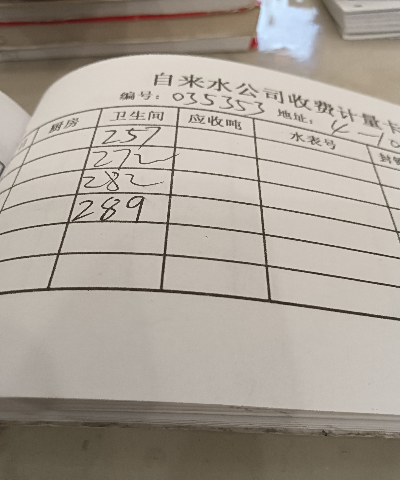 自来水公司收费计量卡
编号: 035353 地址: 4-10
厨房 卫生间 应收吨 水表号
257
272
282
289